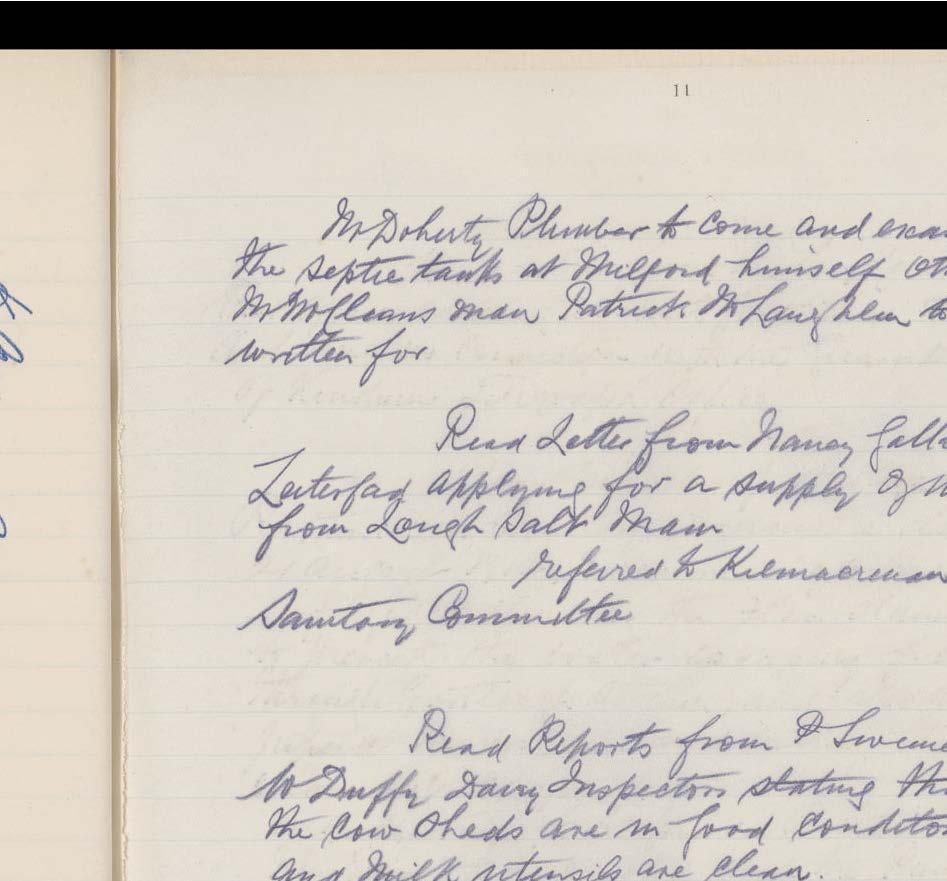 11
Mr Doherty Plumber to come and exa
the septic tanks at Milford himself ot
man Patrick McLaughlin to
written for
Read Letter from Nancy Gall
applying for a supply of
from Lough Salt Main
referred to Kilmacrenan
Sanitary Committee
Read Reports from P Sweene
W Duffy Dairy Inspectors stating tha
the cow sheds are in good conditio
and Milk utensils are clean.